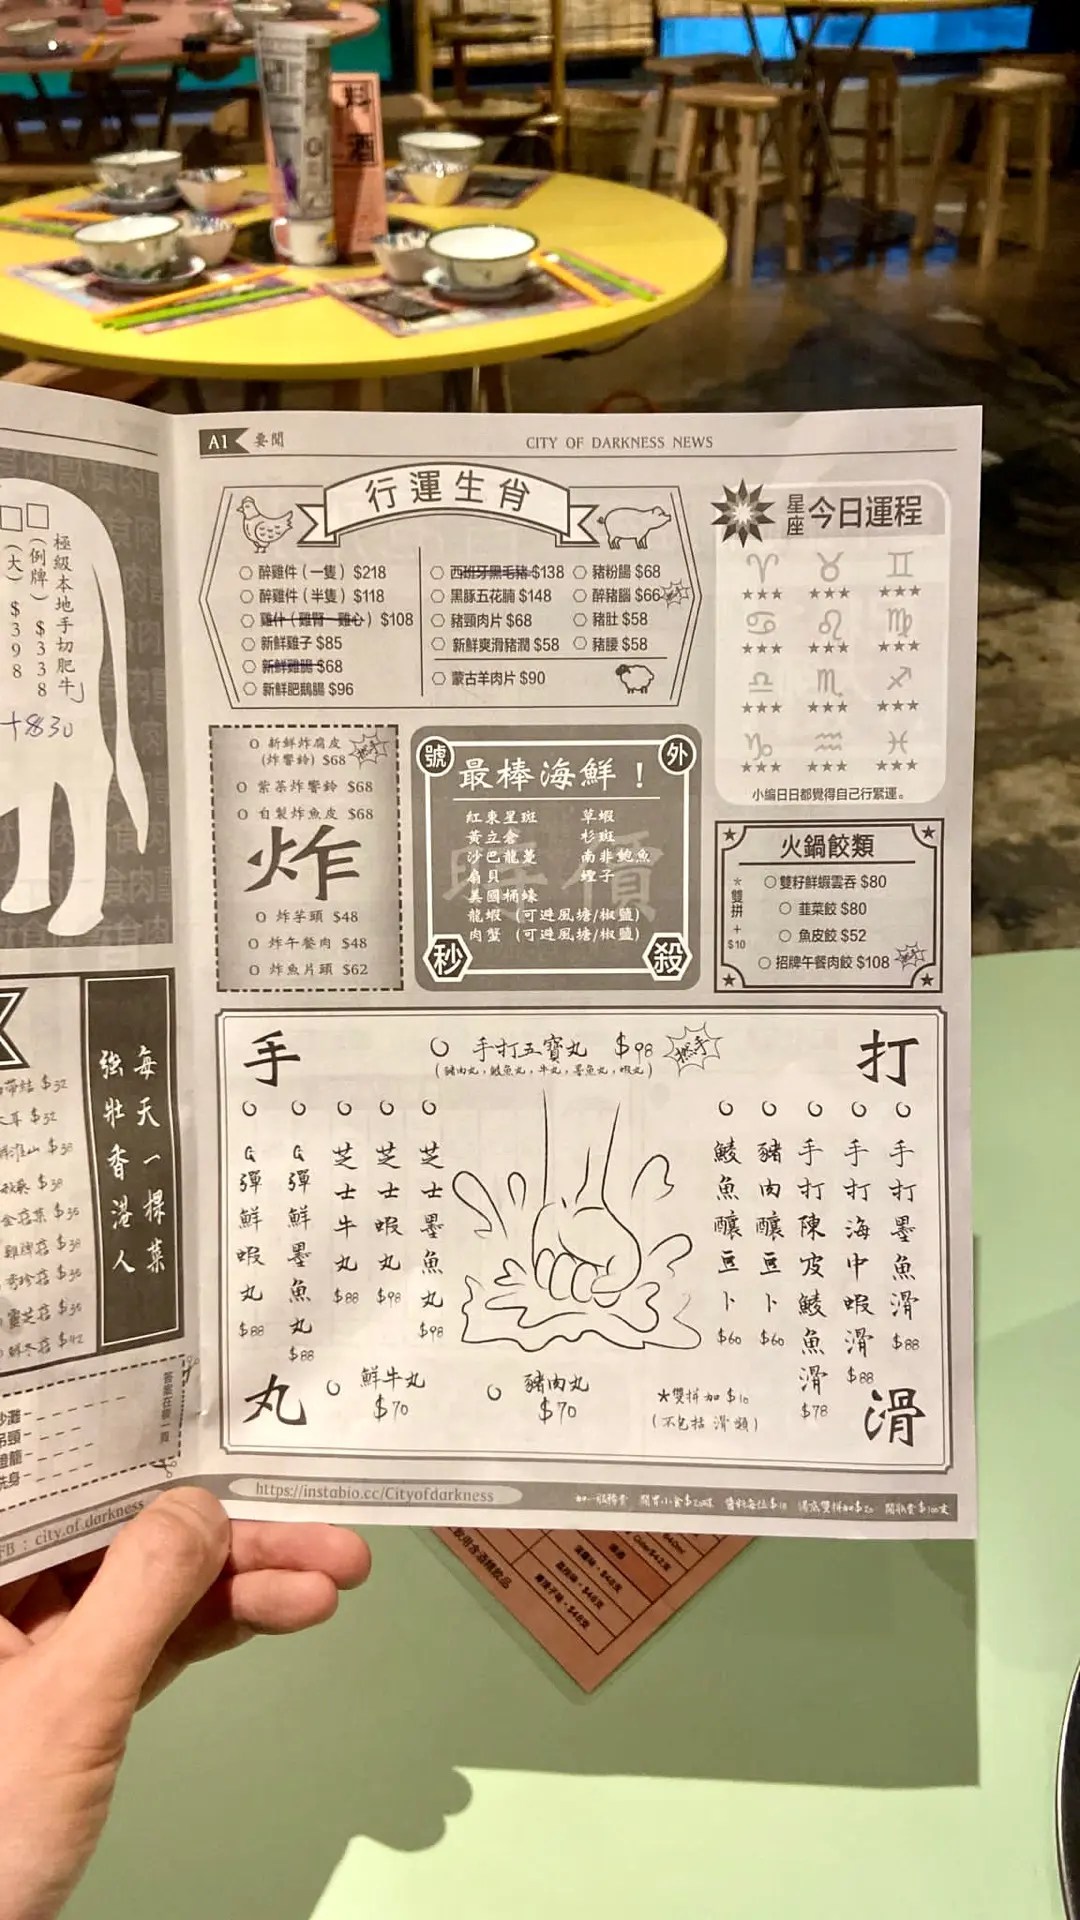 料
酒
A1 要聞
CITY OF DARKNESS NEWS
極級本地手切肥牛
(例牌) $338
(大) $398
+$30
行運生肖
醉雞件 (一隻) $218
醉雞件 (半隻) $118
雞什 (雞腎一雞心) $108
新鮮雞子 $85
新鮮雞腸 $68
新鮮肥鵝腸 $96
西班牙黑毛豬 $138
黑豚五花腩 $148
豬頸肉片 $68
新鮮爽滑豬潤 $58
蒙古羊肉片 $90
豬粉腸 $68
醉豬腦 $66
豬肚 $58
豬腰 $58
星座 今日運程
★★★ ★★★ ★★★
★★★ ★★★ ★★★
★★★ ★★★ ★★★
★★★ ★★★ ★★★
小編日日都覺得自己行緊運。
新鮮炸腐皮
(炸響鈴) $68
紫菜炸響鈴 $68
自製炸魚皮 $68
炸
炸芋頭 $48
炸午餐肉 $48
炸魚片頭 $62
號外
最棒海鮮！
時價
紅東星斑
黃立倉
沙巴龍躉
扇貝
美國桶蠔
龍蝦 (可避風塘/椒鹽)
肉蟹 (可避風塘/椒鹽)
草蝦
杉斑
南非鮑魚
蟶子
秒殺
火鍋餃類
*雙拼+$10
雙籽鮮蝦雲吞 $80
韮菜餃 $80
魚皮餃 $52
招牌午餐肉餃 $108
手打
手打五寶丸 $98
(豬肉丸,鯪魚丸,牛丸,墨魚丸,蝦丸)
G彈鮮蝦丸 $88
G彈鮮墨魚丸 $88
芝士牛丸 $88
芝士蝦丸 $98
芝士墨魚丸 $98
鯪魚釀豆卜 $60
豬肉釀豆卜 $60
手打陳皮鯪魚滑 $78
手打海中蝦滑 $88
手打墨魚滑 $88
丸
鮮牛丸 $70
豬肉丸 $70
*雙拼加$10
(不包括滑類)
滑
每天一棵菜
強壯香港人
$32
$32
$38
$38
$42
答案在後一頁
FB : city.of.darkness
https://instabio.cc/Cityofdarkness
加一服務費